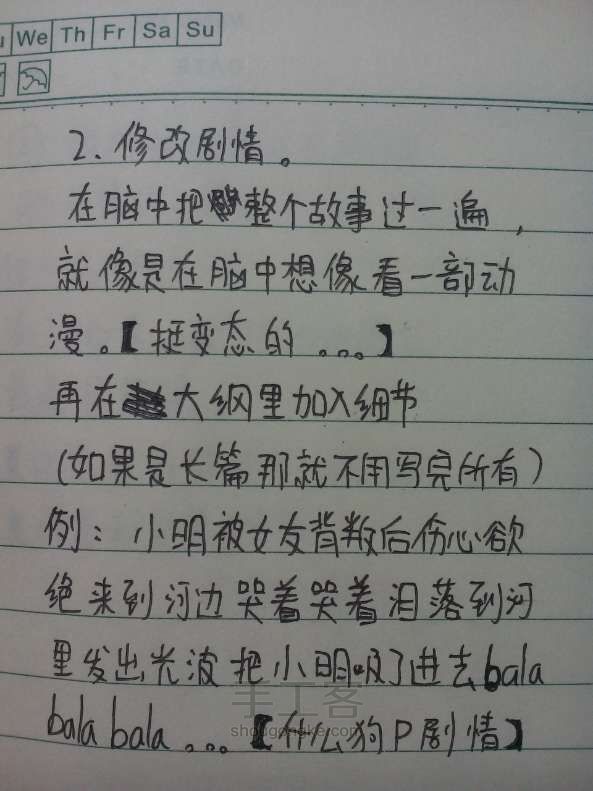 We Th Fr Sa Su
2、修改剧情。
在脑中把整个故事过一遍,
就像是在脑中想像看一部动
漫。【挺变态的...】
再在大纲里加入细节
(如果是长篇那就不用写完所有)
例：小明被女友背叛后伤心欲
绝来到河边哭着哭着泪落到河
里发出光波把小明吸了进去bala
bala bala...【什么狗P剧情】
手工客
shougongke.com